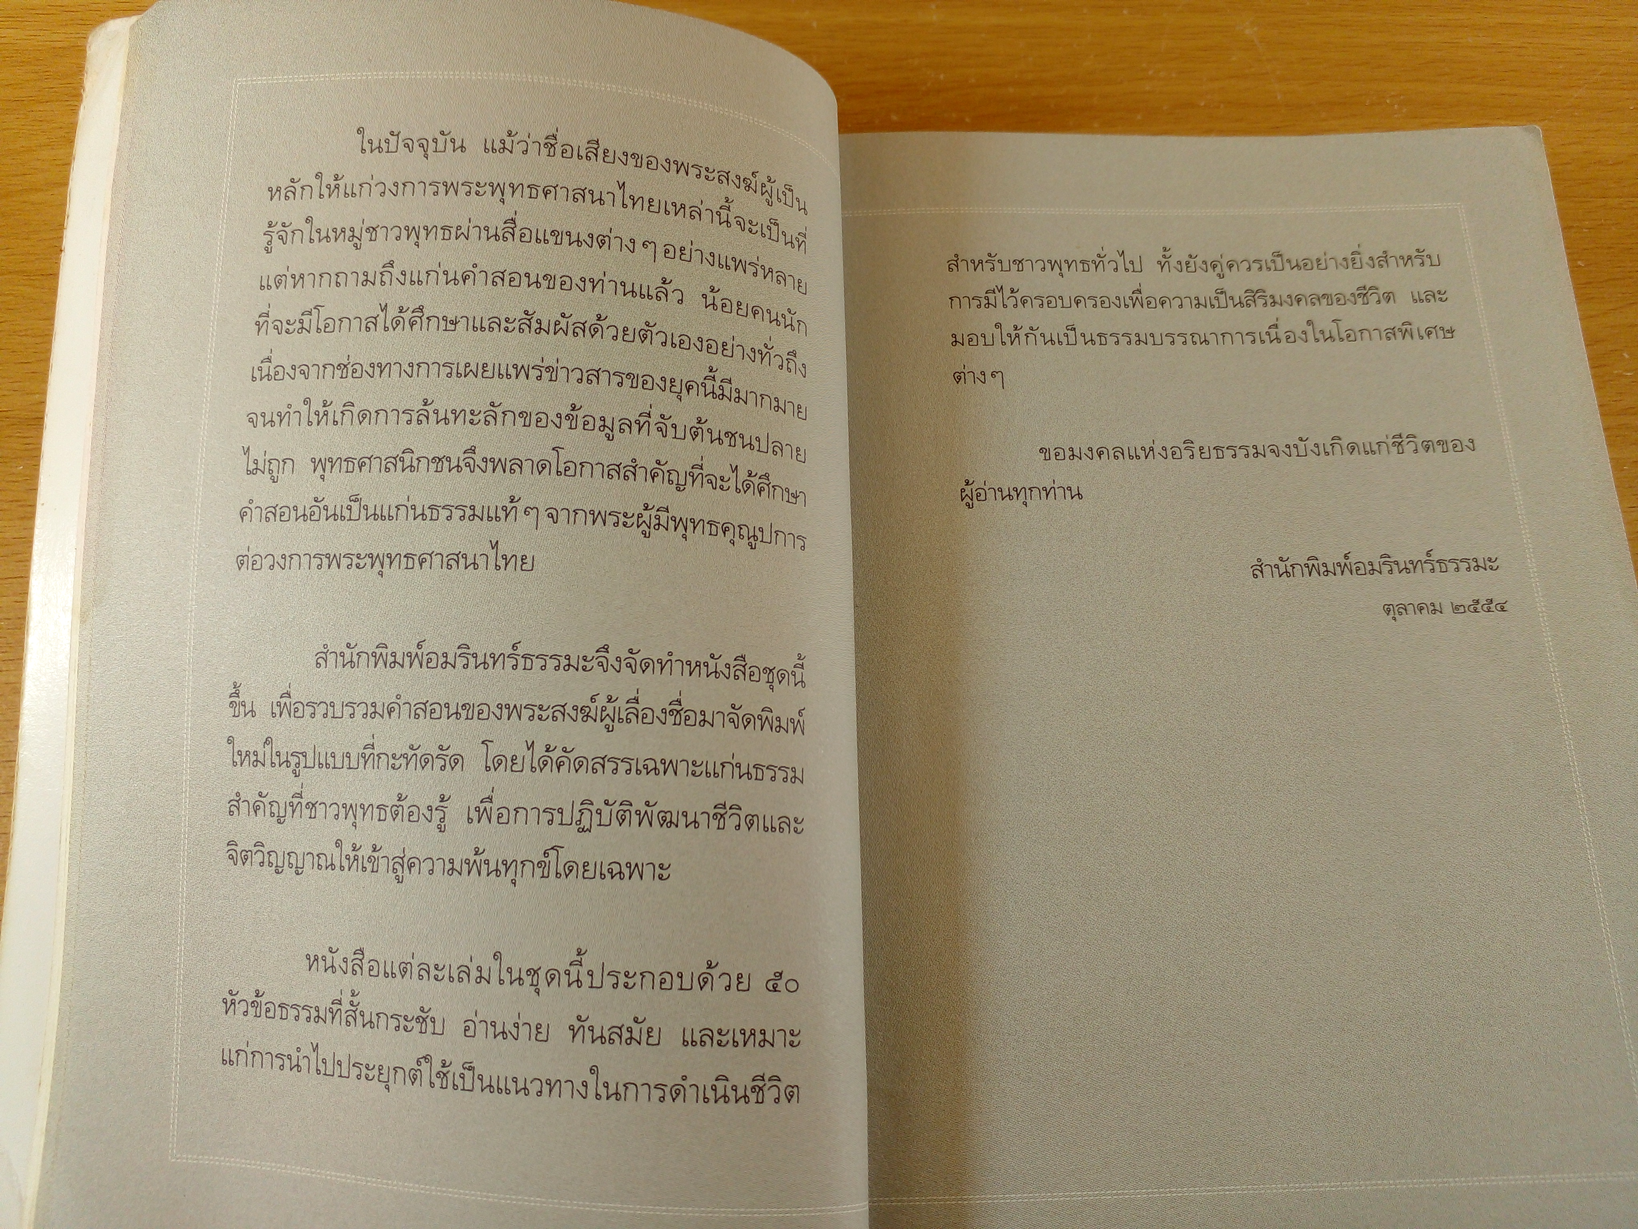 ในปัจจุบัน แม้ว่าชื่อเสียงของพระสงฆ์ผู้เป็น
หลักให้แก่วงการพระพุทธศาสนาไทยเหล่านี้จะเป็นที่
รู้จักในหมู่ชาวพุทธผ่านสื่อแขนงต่าง ๆ อย่างแพร่หลาย
แต่หากถามถึงแก่นคำสอนของท่านแล้ว น้อยคนนัก
ที่จะมีโอกาสได้ศึกษาและสัมผัสด้วยตัวเองอย่างทั่วถึง
เนื่องจากช่องทางการเผยแพร่ข่าวสารของยุคนี้มีมากมาย
จนทำให้เกิดการล้นทะลักของข้อมูลที่จับต้นชนปลาย
ไม่ถูก พุทธศาสนิกชนจึงพลาดโอกาสสำคัญที่จะได้ศึกษา
คำสอนอันเป็นแก่นธรรมแท้ ๆ จากพระผู้มีพุทธคุณูปการ
ต่อวงการพระพุทธศาสนาไทย
สำนักพิมพ์อมรินทร์ธรรมะจึงจัดทำหนังสือชุดนี้
ขึ้น เพื่อรวบรวมคำสอนของพระสงฆ์ผู้เลื่องชื่อมาจัดพิมพ์
ใหม่ในรูปแบบที่กะทัดรัด โดยได้คัดสรรเฉพาะแก่นธรรม
สำคัญที่ชาวพุทธต้องรู้ เพื่อการปฏิบัติพัฒนาชีวิตและ
จิตวิญญาณให้เข้าสู่ความพ้นทุกข์โดยเฉพาะ
หนังสือแต่ละเล่มในชุดนี้ประกอบด้วย ๕๐
หัวข้อธรรมที่สั้นกระชับ อ่านง่าย ทันสมัย และเหมาะ
แก่การนำไปประยุกต์ใช้เป็นแนวทางในการดำเนินชีวิต
สำหรับชาวพุทธทั่วไป ทั้งยังคู่ควรเป็นอย่างยิ่งสำหรับ
การมีไว้ครอบครองเพื่อความเป็นสิริมงคลของชีวิต และ
มอบให้กันเป็นธรรมบรรณาการเนื่องในโอกาสพิเศษ
ต่าง ๆ
ขอมงคลแห่งอริยธรรมจงบังเกิดแก่ชีวิตของ
ผู้อ่านทุกท่าน
สำนักพิมพ์อมรินทร์ธรรมะ
ตุลาคม ๒๕๕๔